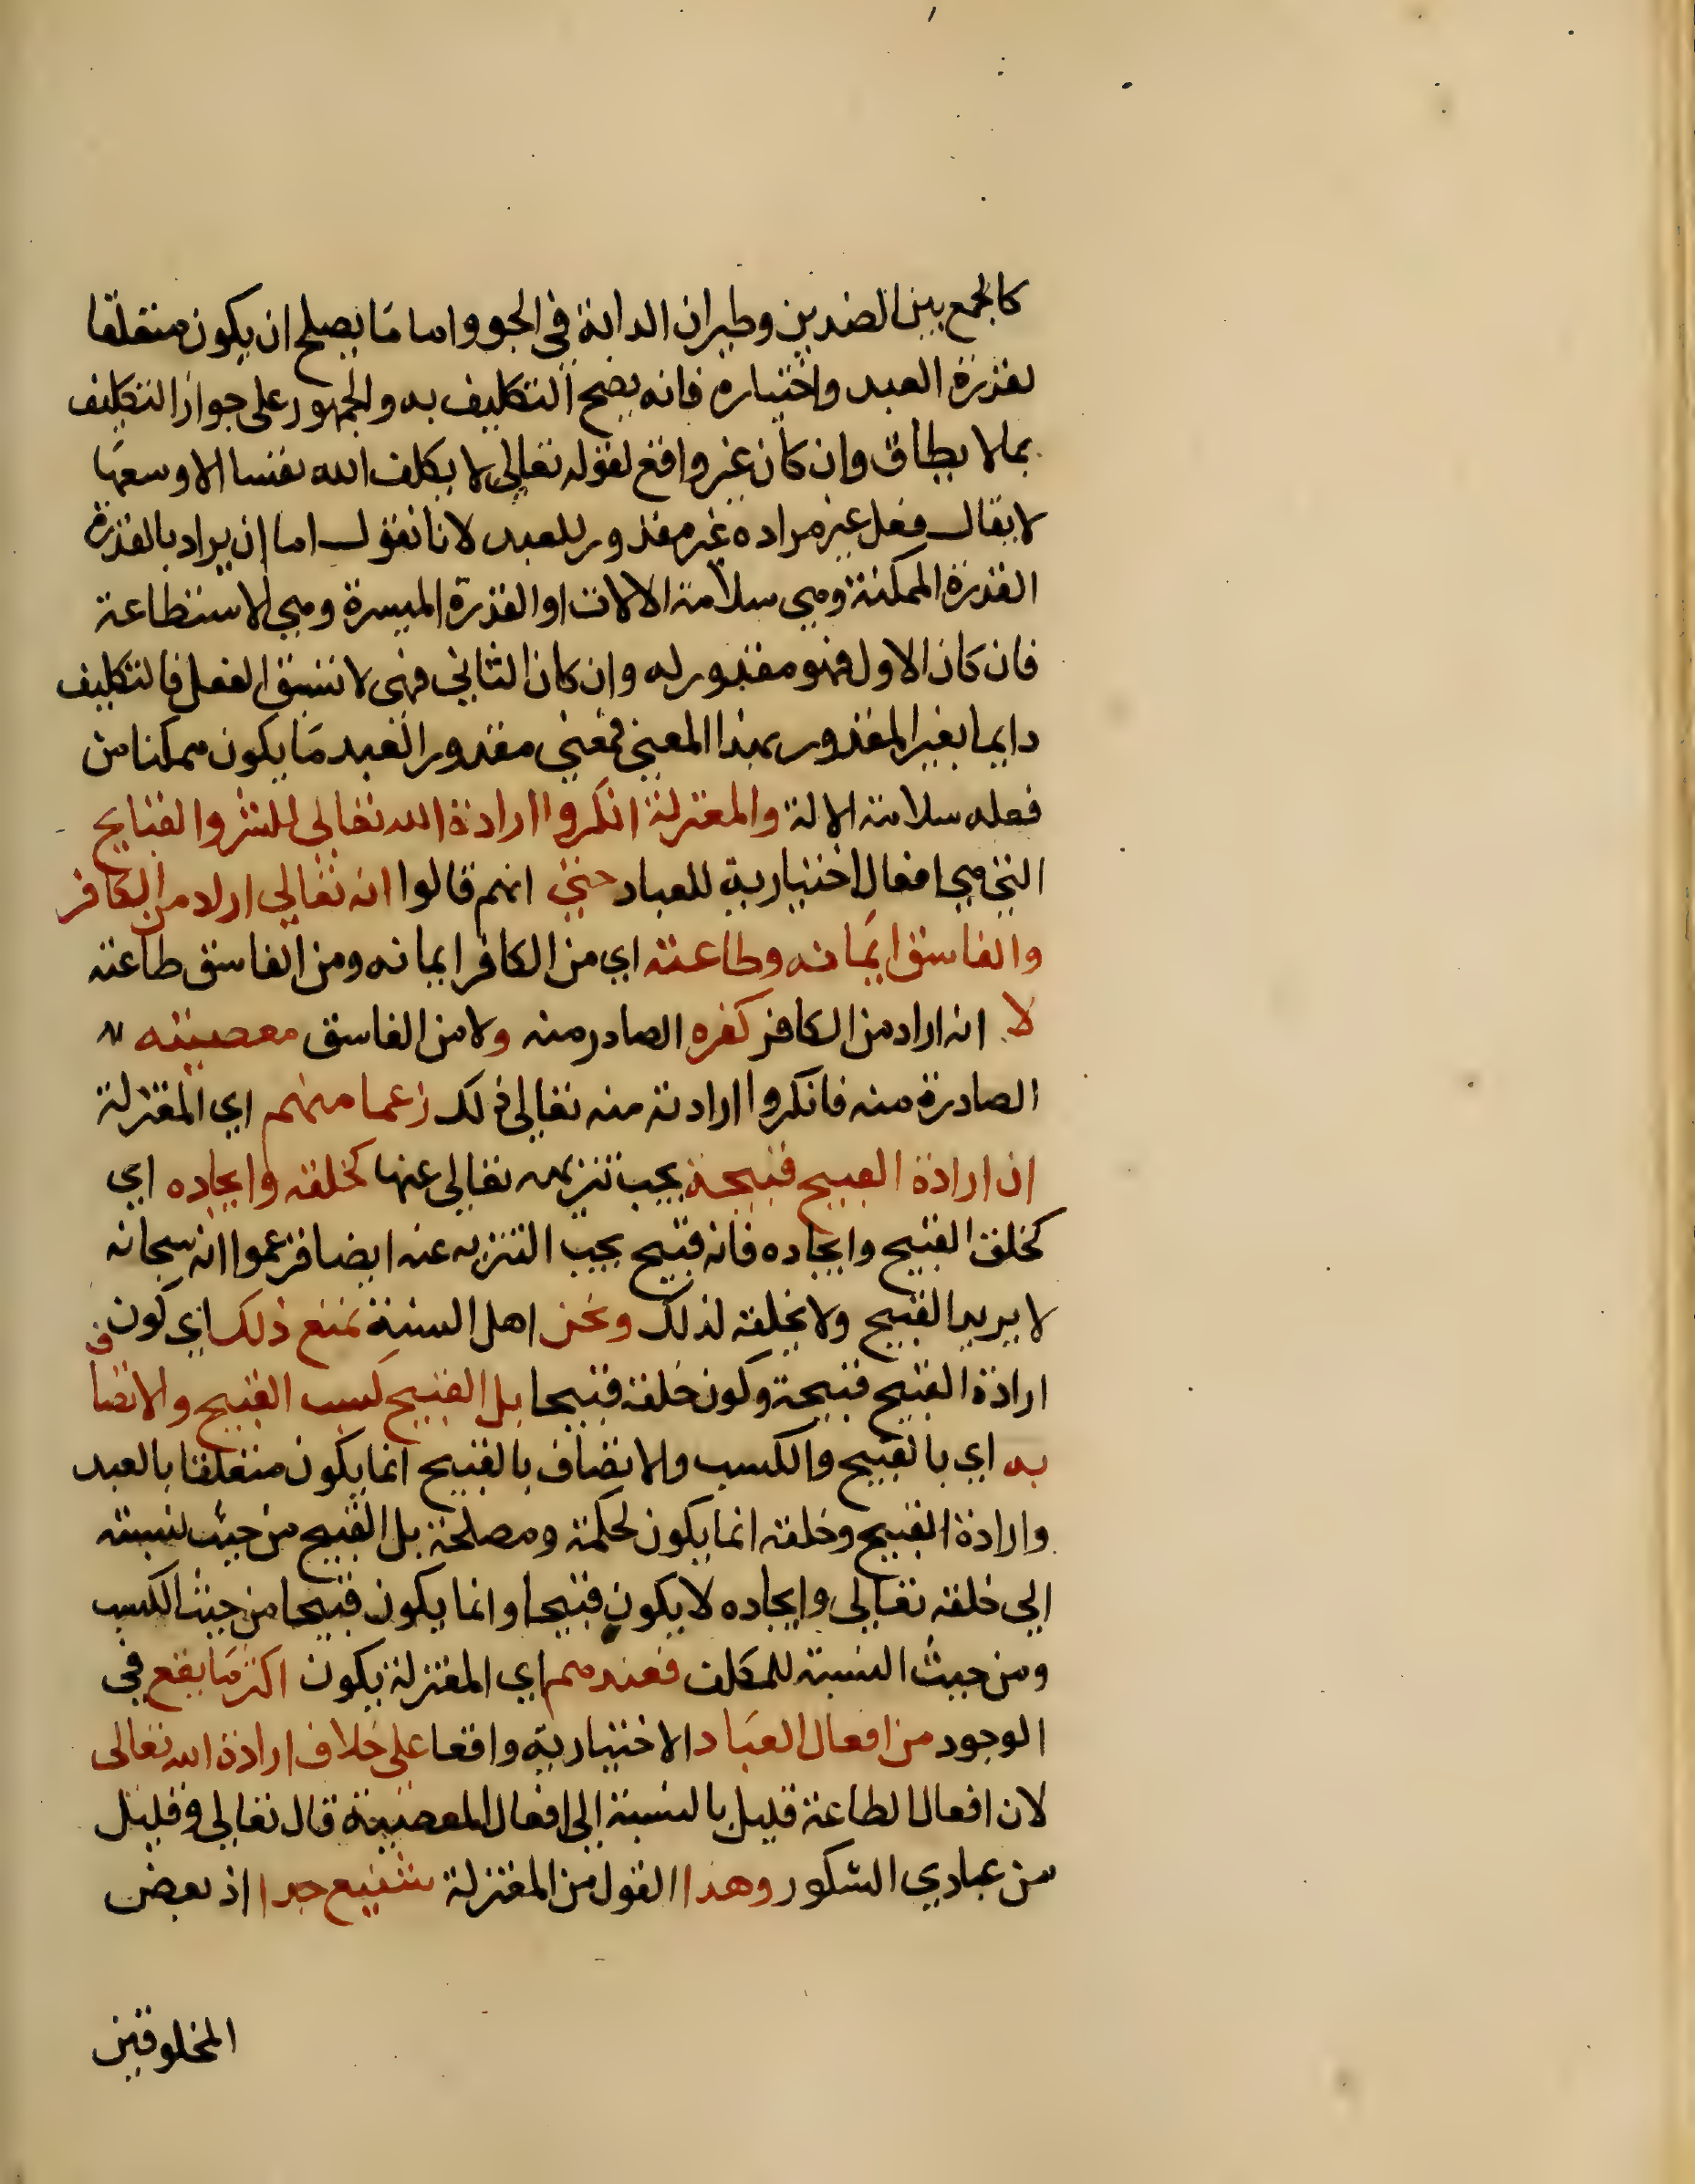 كالجمع بين الضدين وطيران الدابة في الجو واما ما يصلح ان يكون متعلقا
لقدرة العبد واختياره فانه يصح التكليف به والجمهور على جواز التكليف
بما لا يطاق وان كان غير واقع لقوله تعالى لا يكلف الله نفسا الا وسعها
لا يقال فعل غير مراده غير مقدور للعبد لانا نقول اما ان يراد بالقدرة
القدرة الممكنة وهي سلامة الالات او القدرة الميسرة وهي الاستطاعة
فان كان الاول فهو مقدور له وان كان الثاني فهي لا تسبق الفعل فالتكليف
دايما بغير المقدور بهذا المعنى فمعنى مقدور العبد ما يكون ممكنا من
فعله سلامة الالة والمعتزلة انكروا ارادة الله تعالى للشر والقبايح
التي هي افعال اختيارية للعباد حتى انهم قالوا انه تعالى اراد من الكافر
والفاسق ايمانه وطاعته اي من الكافر ايمانه ومن الفاسق طاعته
لا انه اراد من الكافر كفره الصادر منه ولا من الفاسق معصيته
الصادرة منه فانكروا ارادته منه تعالى ذلك زعما منهم اي المعتزلة
ان ارادة القبيح قبيحة يجب تنزيهه تعالى عنها كخلقه وايجاده اي
كخلق القبيح وايجاده فانه قبيح يجب التنزيه عنه ايضا فزعموا انه سبحانه
لا يريد القبيح ولا يخلقه لذلك ونحن اهل السنة نمنع ذلك اي كون
ارادة القبيح قبيحة وكون خلقه قبيحا بل القبيح كسب القبيح والاتصاف
به اي بالقبيح والكسب والاتصاف بالقبيح انما يكون متعلقا بالعبد
وارادة القبيح وخلقه انما يكون لحكمة ومصلحة بل القبيح من حيث نسبته
الى خلقه تعالى وايجاده لا يكون قبيحا وانما يكون قبيحا من حيث الكسب
ومن حيث النسبة للمكلف فعندهم اي المعتزلة يكون اكثر ما يقع في
الوجود من افعال العباد الاختيارية واقعا على خلاف ارادة الله تعالى
لان افعال الطاعة قليل بالنسبة الى افعال المعصية قال تعالى وقليل
من عبادي الشكور وهذا القول من المعتزلة شنيع جدا اذ بعض
المخلوقين